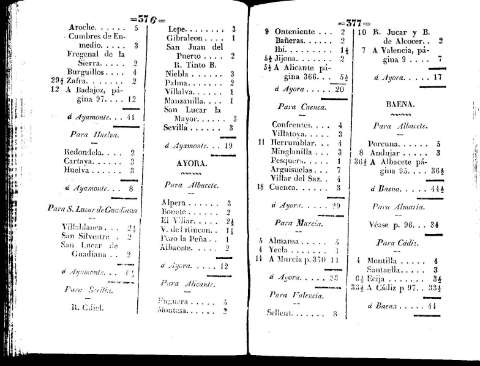 =376=
Aroche. 5
Cumbres de En-
medio. 3
Fregenal de la
Sierra. 2
Burguillos. 4
29½ Zafra. 2
12 A Badajoz, pá-
gina 97. 12
á Ayamonte. 41
Para Huelva.
Redondela. 2
Cartaya. 3
Huelva 3
á Ayamonte. 8
Para S. Lucar de Guadiana
Villablanca. 2½
San Silvestre 2
San Lucar de
Guadiana 2
á Ayamonte.
Para Sevilla.
Lepe. 3
Gibraleon. 1
San Juan del
Puerto 2
R. Tinto B.
Niebla 3
Palma. 2
Villalva. 1
Manzanilla. 1
San Lucar la
Mayor. 3
Sevilla 3
á Ayamonte. 19
AYORA.
Para Albacete.
Alpera 3
Bonete 2
El Villar. 2½
Pozo la Peña 1
Albacete. 2
á Ayora. 12
Para Alicante.
Montesa. 2
=377=
9 Onteniente 2
Bañeras. 2
Ibi. 1½
5½ Jijona. 2
5½ A Alicante pá-
gina 366. 5½
á Ayora 20
Para Cuenca.
Confrentes. 4
Villatoya. 3
11 Herrumblar. 4
Minglanilla 3
Pesquera. 1
Arguisuelas 7
Villar del Saz. 4
18 Cuenca. 3
á Ayora. 29
Para Murcia.
4 Almansa 5
4 Yecla 4
11 A Murcia p. 370 11
á Ayora. 23
Para Valencia.
Sellent. 8
10 R. Jucar y B.
de Alcocer 2
7 A Valencia, pá-
gina 9 7
á Ayora. 17
BAENA.
Para Albacete.
Porcuna. 5
8 Andujar 3
36½ A Albacete pá-
gina 95. 36½
á Baena. 44½
Para Almería.
Véase p. 96. 34
Para Cádiz.
4 Montilla 4
Santaella. 3
6½ Ecija 3½
33½ A Cádiz p. 97. 33½
á Baena 44